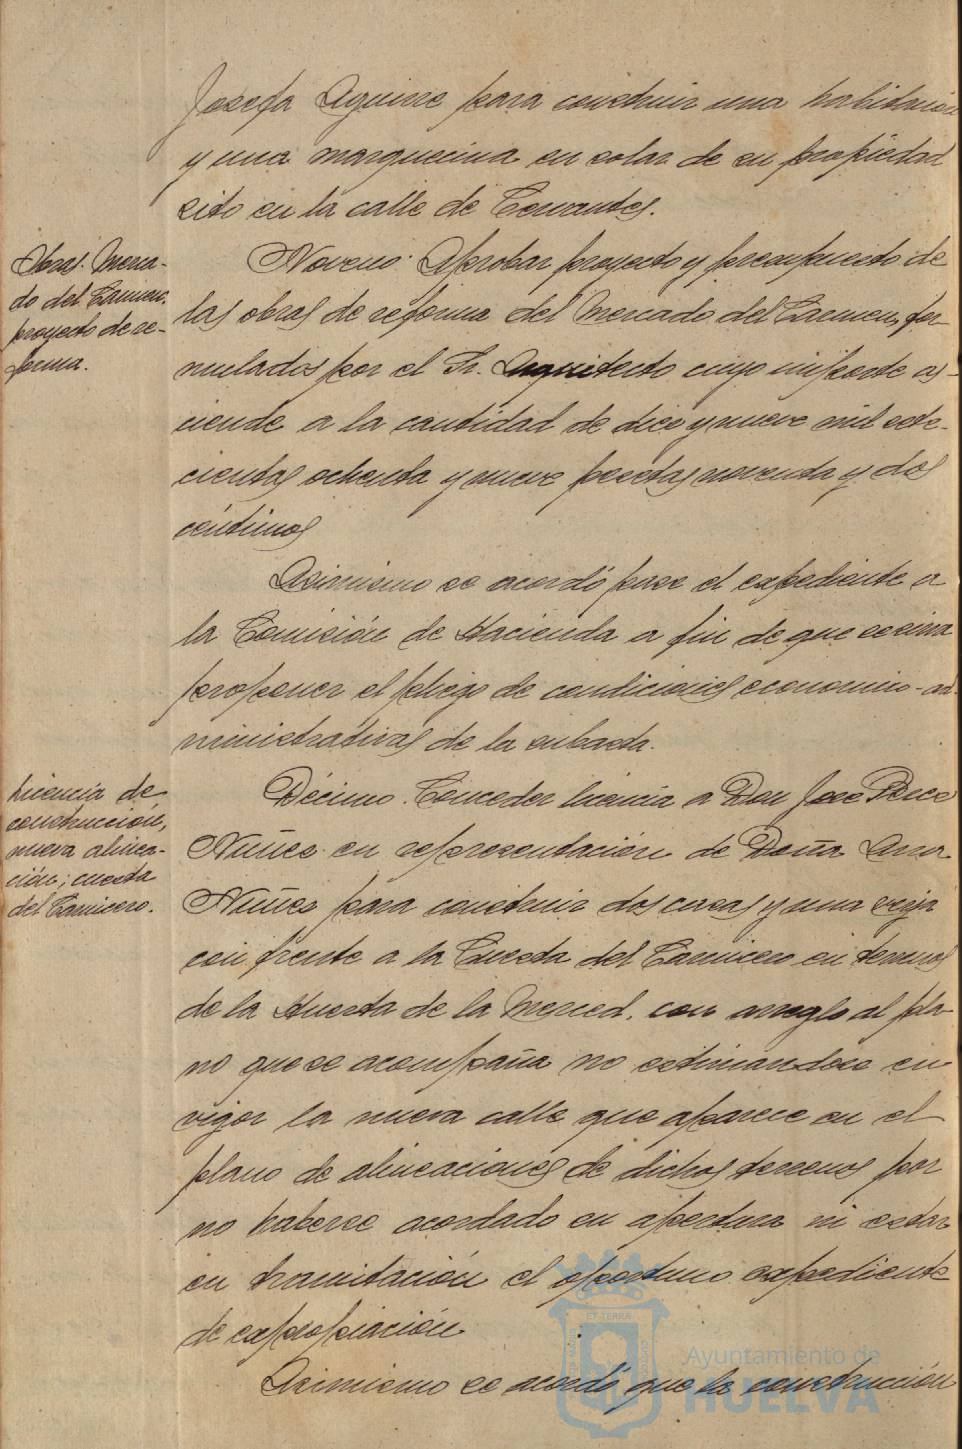 Josefa Aguirre para construir una habitación
y una marquesina en solar de su propiedad
sito en la calle de Cervantes.
Obras. Merca-
do del Carmen.
proyecto de re-
forma.
Noveno. Aprobar proyecto y presupuesto de
las obras de reforma del Mercado del Carmen, for-
mulados por el Sr. Arquitecto cuyo importe as-
ciende a la cantidad de diez y nueve mil sete-
cientas ochenta y nueve pesetas noventa y dos
céntimos
Asimismo se acordó pase el expediente a
la Comisión de Hacienda a fin de que se sirva
proponer el pliego de condiciones económico-ad-
ministrativas de la subasta.
Licencia de
construcción,
nueva alinea-
ción; cuesta
del Carnicero.
Décimo. Conceder licencia a Don José Perez
Nuñez en representación de Doña Ana
Nuñez para construir dos casas y una verja
con frente a la Cuesta del Carnicero en terrenos
de la Huerta de la Merced, con arreglo al pla-
no que se acompaña no estimandose en
vigor la nueva calle que aparece en el
plano de alineaciones de dichos terrenos por
no haberse acordado su apertura ni estar
en tramitación el oportuno expediente
de expropiación
Asimismo se acordó que la construcción
Ayuntamiento de
HUELVA